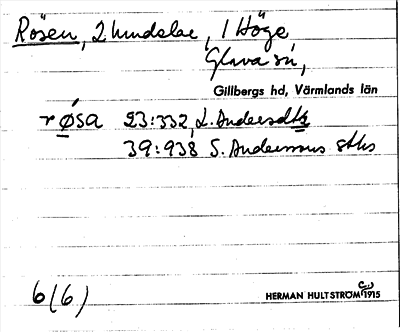 Rösen, 2 hundelar, 1 Höge
Glava sn,
Gillbergs hd, Värmlands län
røsa 23:332, L. Andersdtr
39:938 S. Anderssons sths
6(6)
HERMAN HULTSTRÖM 1915